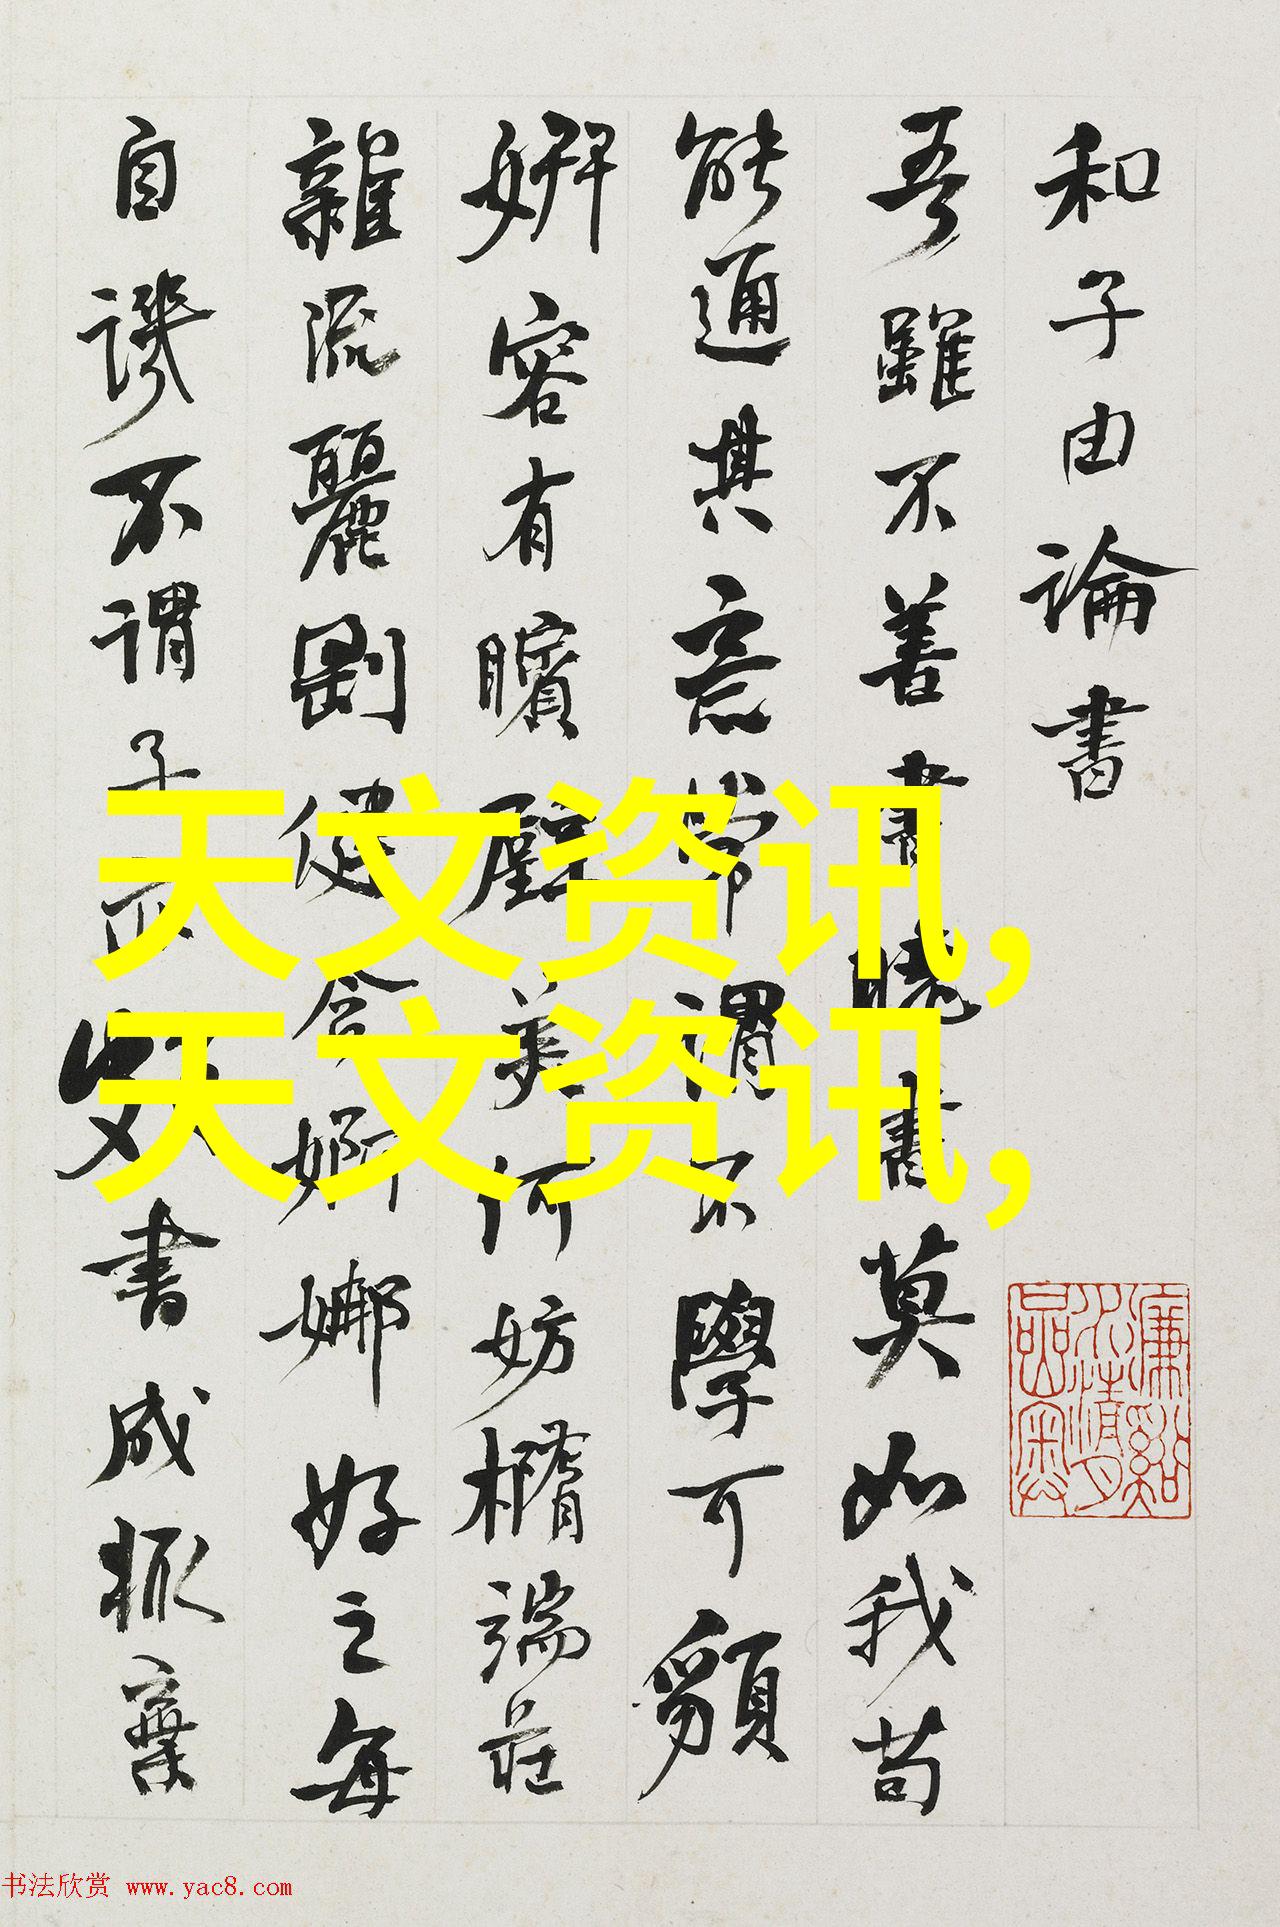 和子由論書
吾雖不善書曉書莫如我苟
能通其意常謂不學可䫉
妍容有矉璧美何妨橢端莊
雜流麗剛健含婀娜好之每
自譏不謂子亦頗書成輒棄
天文资讯,
天文资讯,
书法欣赏 www.yac8.com